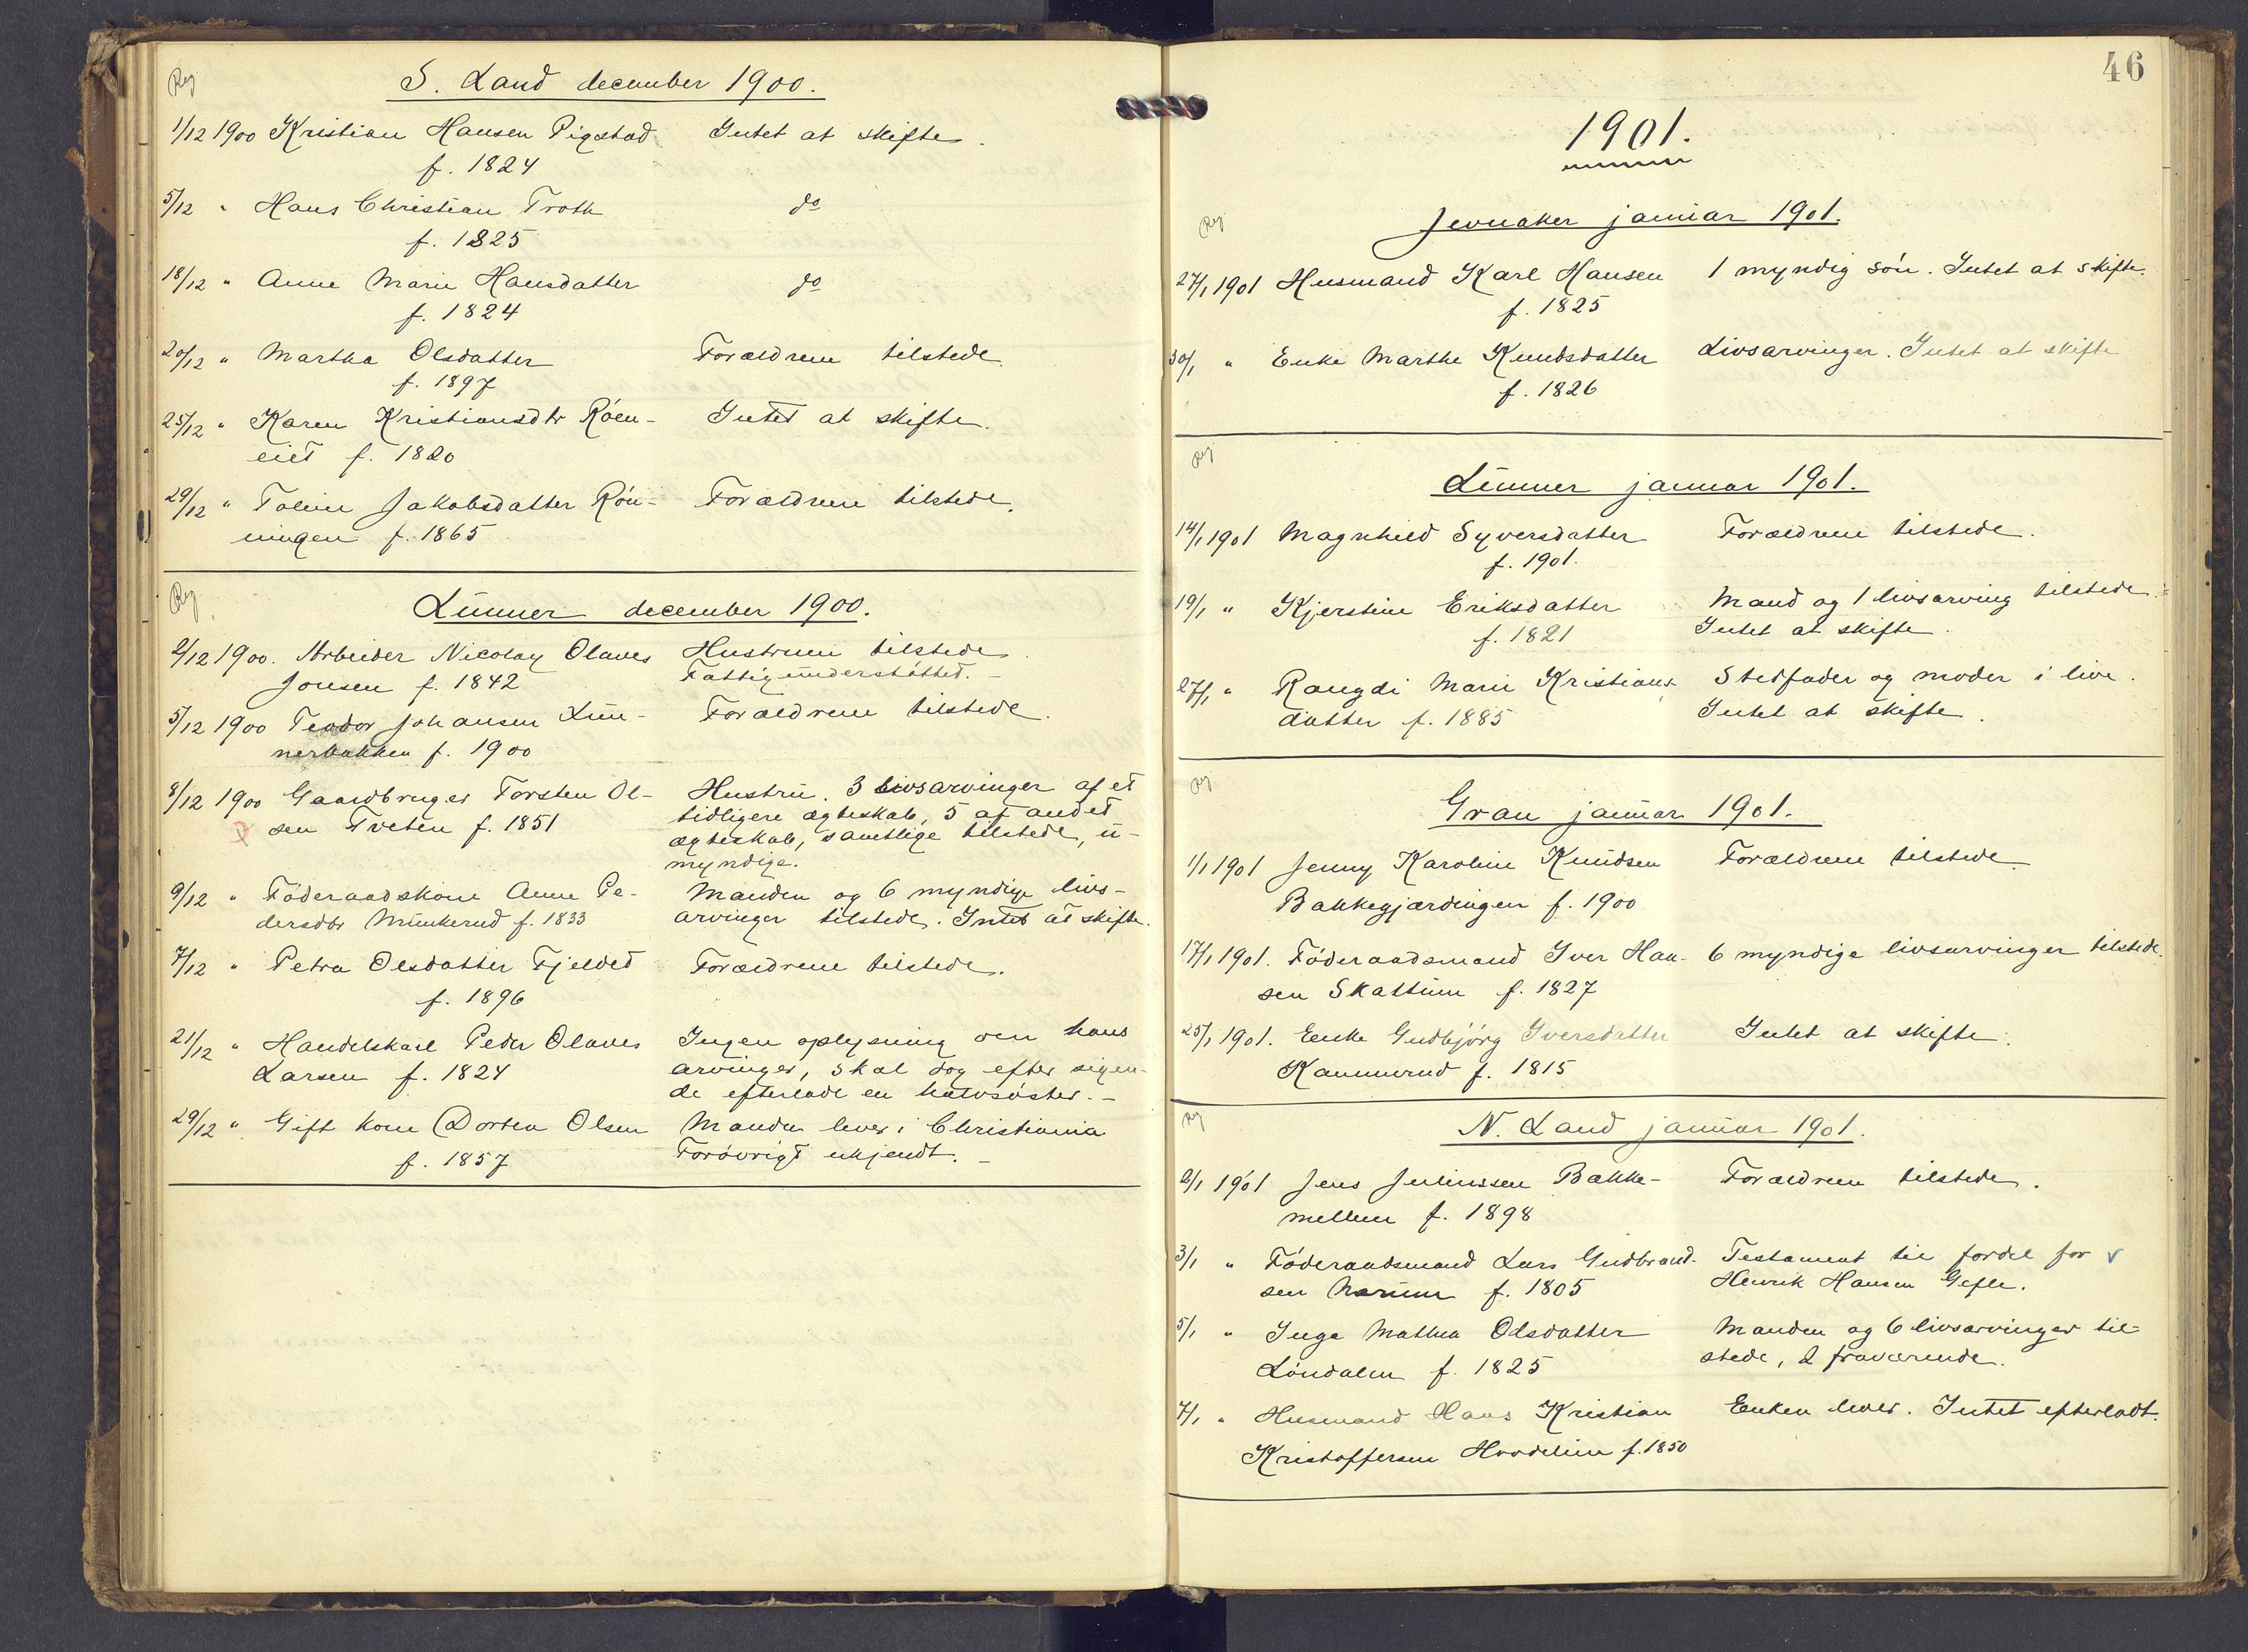 Reg
S. Land december 1900.
1/12 1900 Kristian Hansen Pigstad Intet at skifte.
f. 1824
5/12 " Hans Christian Troth do
f. 1825
18/12 " Anne Marie Hansdatter do
f. 1824
20/12 " Martha Olsdatter Forældrene tilstede.
f. 1897
25/12 " Karen Kristiansdtr Röen- Intet at skifte.
eiet f. 1820
29/12 " Toline Jakobsdatter Rön- Forældrene tilstede.
ningen f. 1865
Reg
Lunner december 1900.
2/12 1900. Arbeider Nicolay Olaves Hustruen tilstede.
Jonsen f. 1842 Fattigunderstöttet. -
5/12 1900 Teodor Johansen Lun- Forældrene tilstede.
nerbakken f. 1900
8/12 1900 Gaardbruger Torsten Ol- Hustru. 3 livsarvinger af et
sen Tveten f. 1851 tidligere ægteskab, 5 af andet
ægteskab, samtlige tilstede, u-
myndige.
9/12 " Föderaadskone Anne Pe- Manden og 6 myndige livs-
dersdtr Munkerud f. 1833 arvinger tilstede. Intet at skifte.
7/12 " Petra Olsdatter Fjeldet Forældrene tilstede.
f. 1896
21/12 " Handelskarl Peder Olaves Ingen oplysning om hans
Larsen f. 1824 arvinger, skal dog efter sigen-
de efterlade en halvsöster. -
29/12 " Gift kone Dortea Olsen Manden lever i Christiania
f. 1857 Forövrigt ukjendt. -
46
1901.
Reg
Jevnaker januar 1901.
27/1 1901 Husmand Karl Hansen 1 myndig sön. Intet at skifte.
f. 1825
30/1 " Enke Marthe Knudsdatter Livsarvinger. Intet at skifte
f. 1826
Reg
Lunner januar 1901.
14/1 1901 Magnhild Syversdatter Forældrene tilstede.
f. 1901.
19/1 " Kjerstine Eriksdatter Mand og 1 livsarving tilstede.
f. 1821 Intet at skifte.
27/1 " Rangdi Marie Kristians- Stedfader og moder i live.
datter f. 1885 Intet at skifte.
Reg
Gran januar 1901.
1/1 1901 Jenny Karoline Knudsen Forældrene tilstede
Bakkegjærdingen f. 1900
17/1 1901. Föderaadsmand Iver Han- 6 myndige livsarvinger tilstede.
sen Skattum f. 1827
25/1 1901. Enke Gudbjörg Iversdatter Intet at skifte.
Kammerud f. 1815
Reg
N. Land januar 1901.
2/1 1901 Jens Juliussen Bakke- Forældrene tilstede.
mellem f. 1898
3/1 " Föderaadsmand Lars Gudbrand- Testament til fordel for
sen Narum f. 1805 Henrik Hansen Gefle.
5/1 " Inge Mathea Odsdatter Manden og 6 livsarvinger til-
Löndalen f. 1825 stede, 2 fraværende.
7/1 " Husmand Hans Kristian Enken lever. Intet efterladt.
Kristoffersen Hovdelien f. 1850